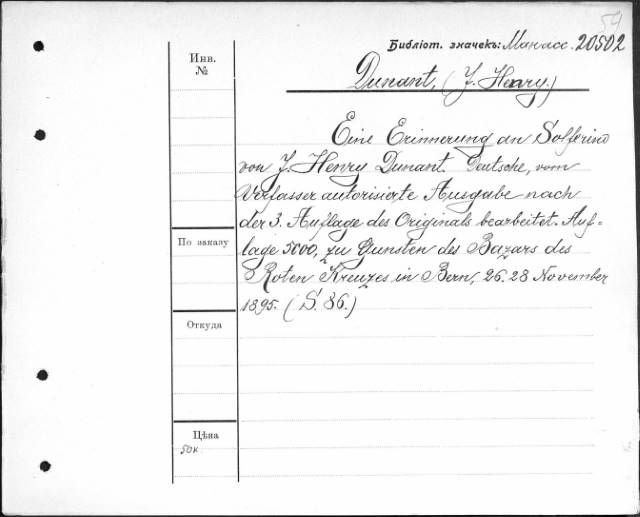 54
Библiот. значекъ: Манасс. 20502
Инв.
№
Dunant, (J. Henry.)
Eine Erinnerung an Solferino
von J. Henry Dunant. Deutsche, vom
Verfasser autorisierte Ausgabe nach
der 3. Auflage des Originals bearbeitet. Auf-
По заказу
lage 5000, zu Gunsten des Bazars des
Roten Kreuzes in Bern, 26.28 November
1895. (S. 86.)
Откуда
Цѣна
50к